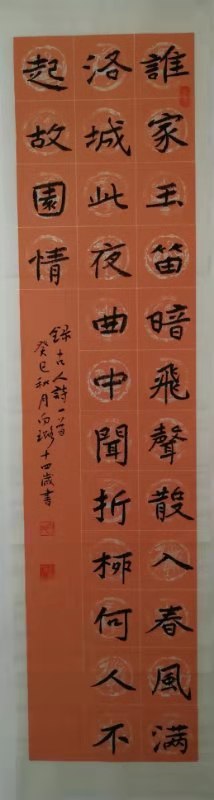 誰家玉笛暗飛聲散入春風满
洛城此夜曲中聞折柳何人不
起故園情
錄古人詩一首
癸巳秋月向璐十四歲書